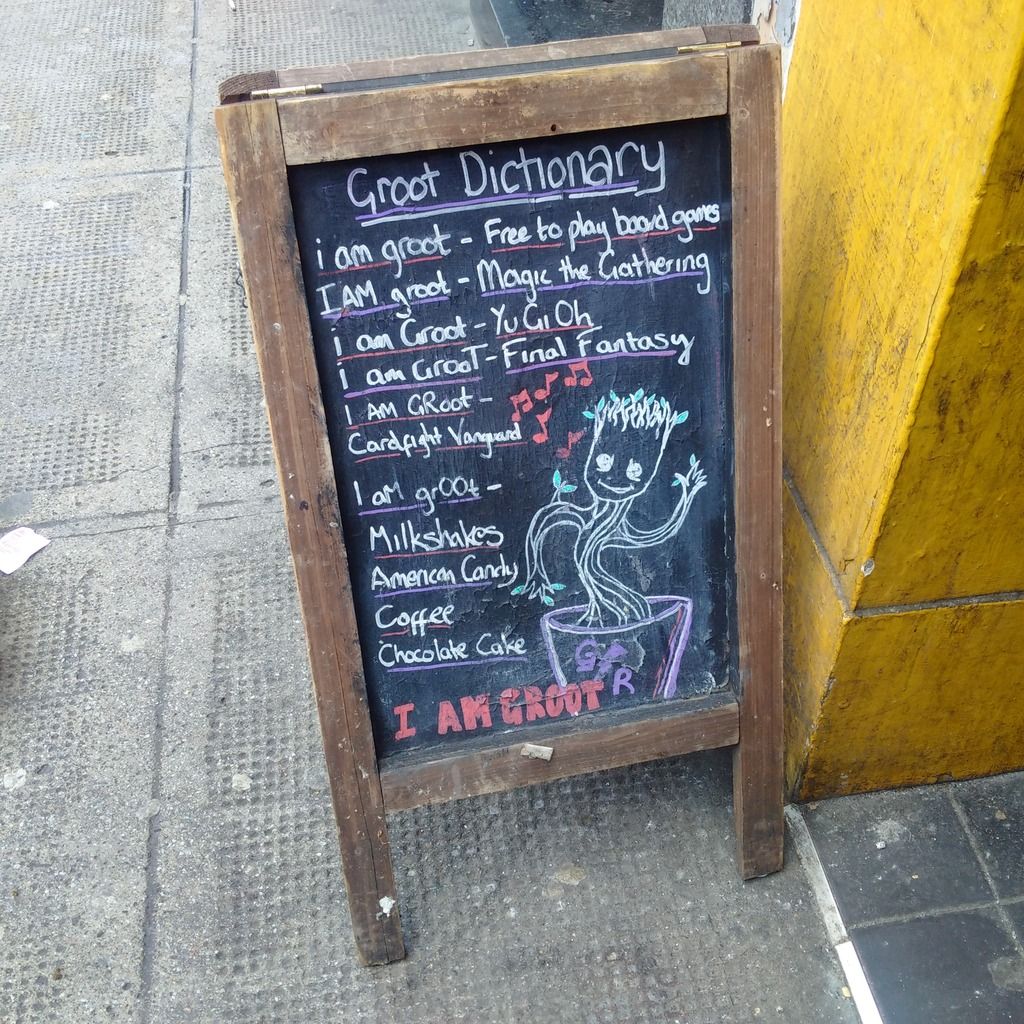 Groot Dictionary
i am groot - Free to play board games
I AM groot - Magic the Gathering
i am Groot - Yu Gi Oh
i am GrooT - Final Fantasy
I AM GRoot -
Cardfight Vanguard
I aM grOOt -
Milkshakes
American Candy
Coffee
Chocolate Cake
G
R
I AM GROOT